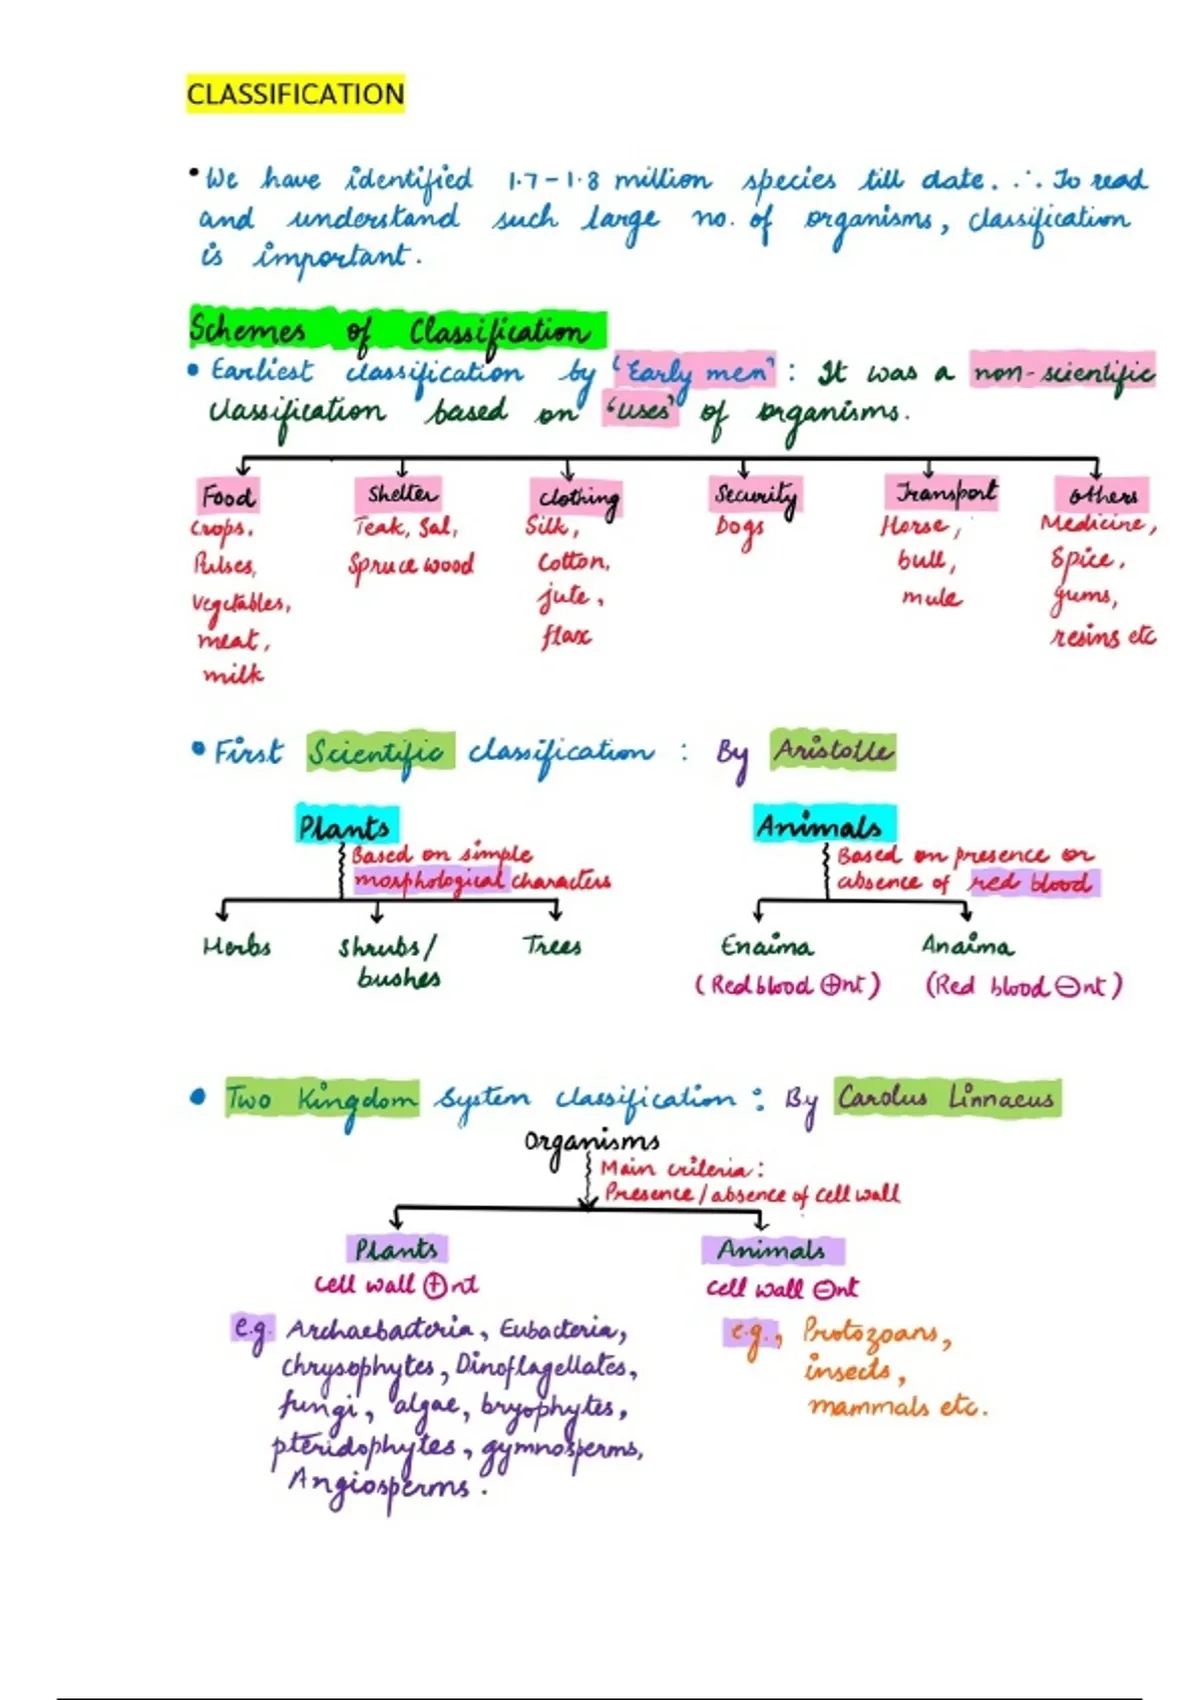 CLASSIFICATION
• We have identified 1.7-1.8 million species till date. ∴ To read
and understand such large no. of organisms, classification
is important.
Schemes of Classification
• Earliest classification by 'Early men' : It was a non-scientific
classification based on 'uses' of organisms.
Food Shelter clothing Security Transport others
Crops, Teak, Sal, Silk, Dogs Horse, Medicine,
Pulses, Spruce wood Cotton, bull, Spice,
vegetables, jute, mule gums,
meat, flax resins etc
milk
• First Scientific classification : By Aristotle
Plants Animals
Based on simple Based on presence or
morphological characters absence of red blood
Herbs Shrubs/ Trees Enaima Anaima
bushes (Red blood ⊕nt) (Red blood ⊖nt)
• Two Kingdom System classification : By Carolus Linnaeus
Organisms
Main criteria:
Presence/absence of cell wall
Plants Animals
Cell wall ⊕nt Cell wall ⊖nt
e.g. Archaebacteria, Eubacteria, e.g., Protozoans,
chrysophytes, Dinoflagellates, insects,
fungi, algae, bryophytes, mammals etc.
pteridophytes, gymnosperms,
Angiosperms.